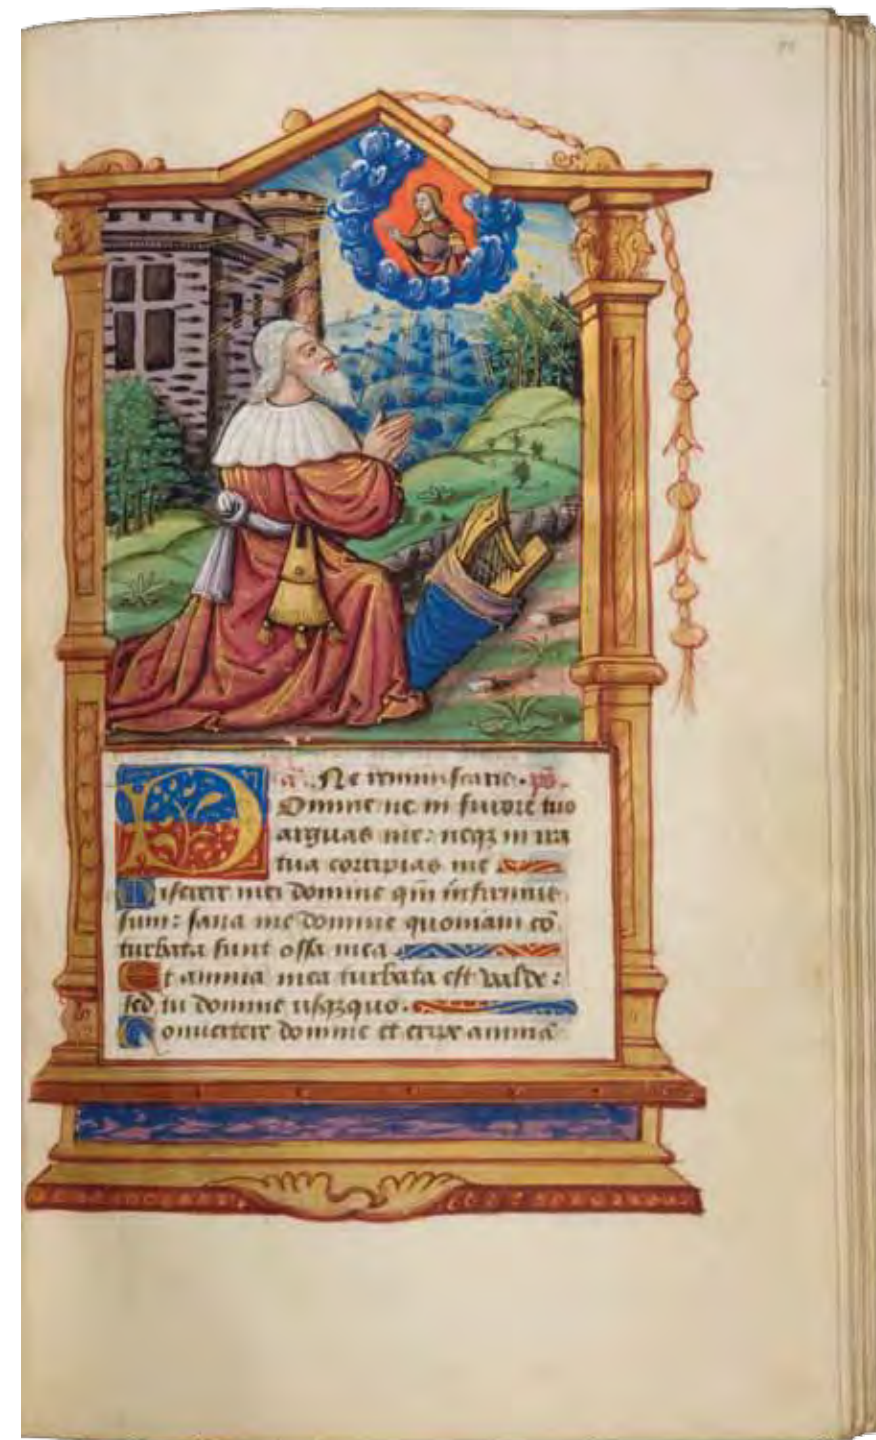 a. Ne reminiscaris. ps.
Domine ne in furore tuo
arguas me: neqz in ira
tua corripias me
Miserere mei domine qm̄ infirmus
sum: sana me domine quoniam cō
turbata sunt ossa mea
Et anima mea turbata est valde:
sed tu domine usqzquo.
Convertere domine et eripe animā